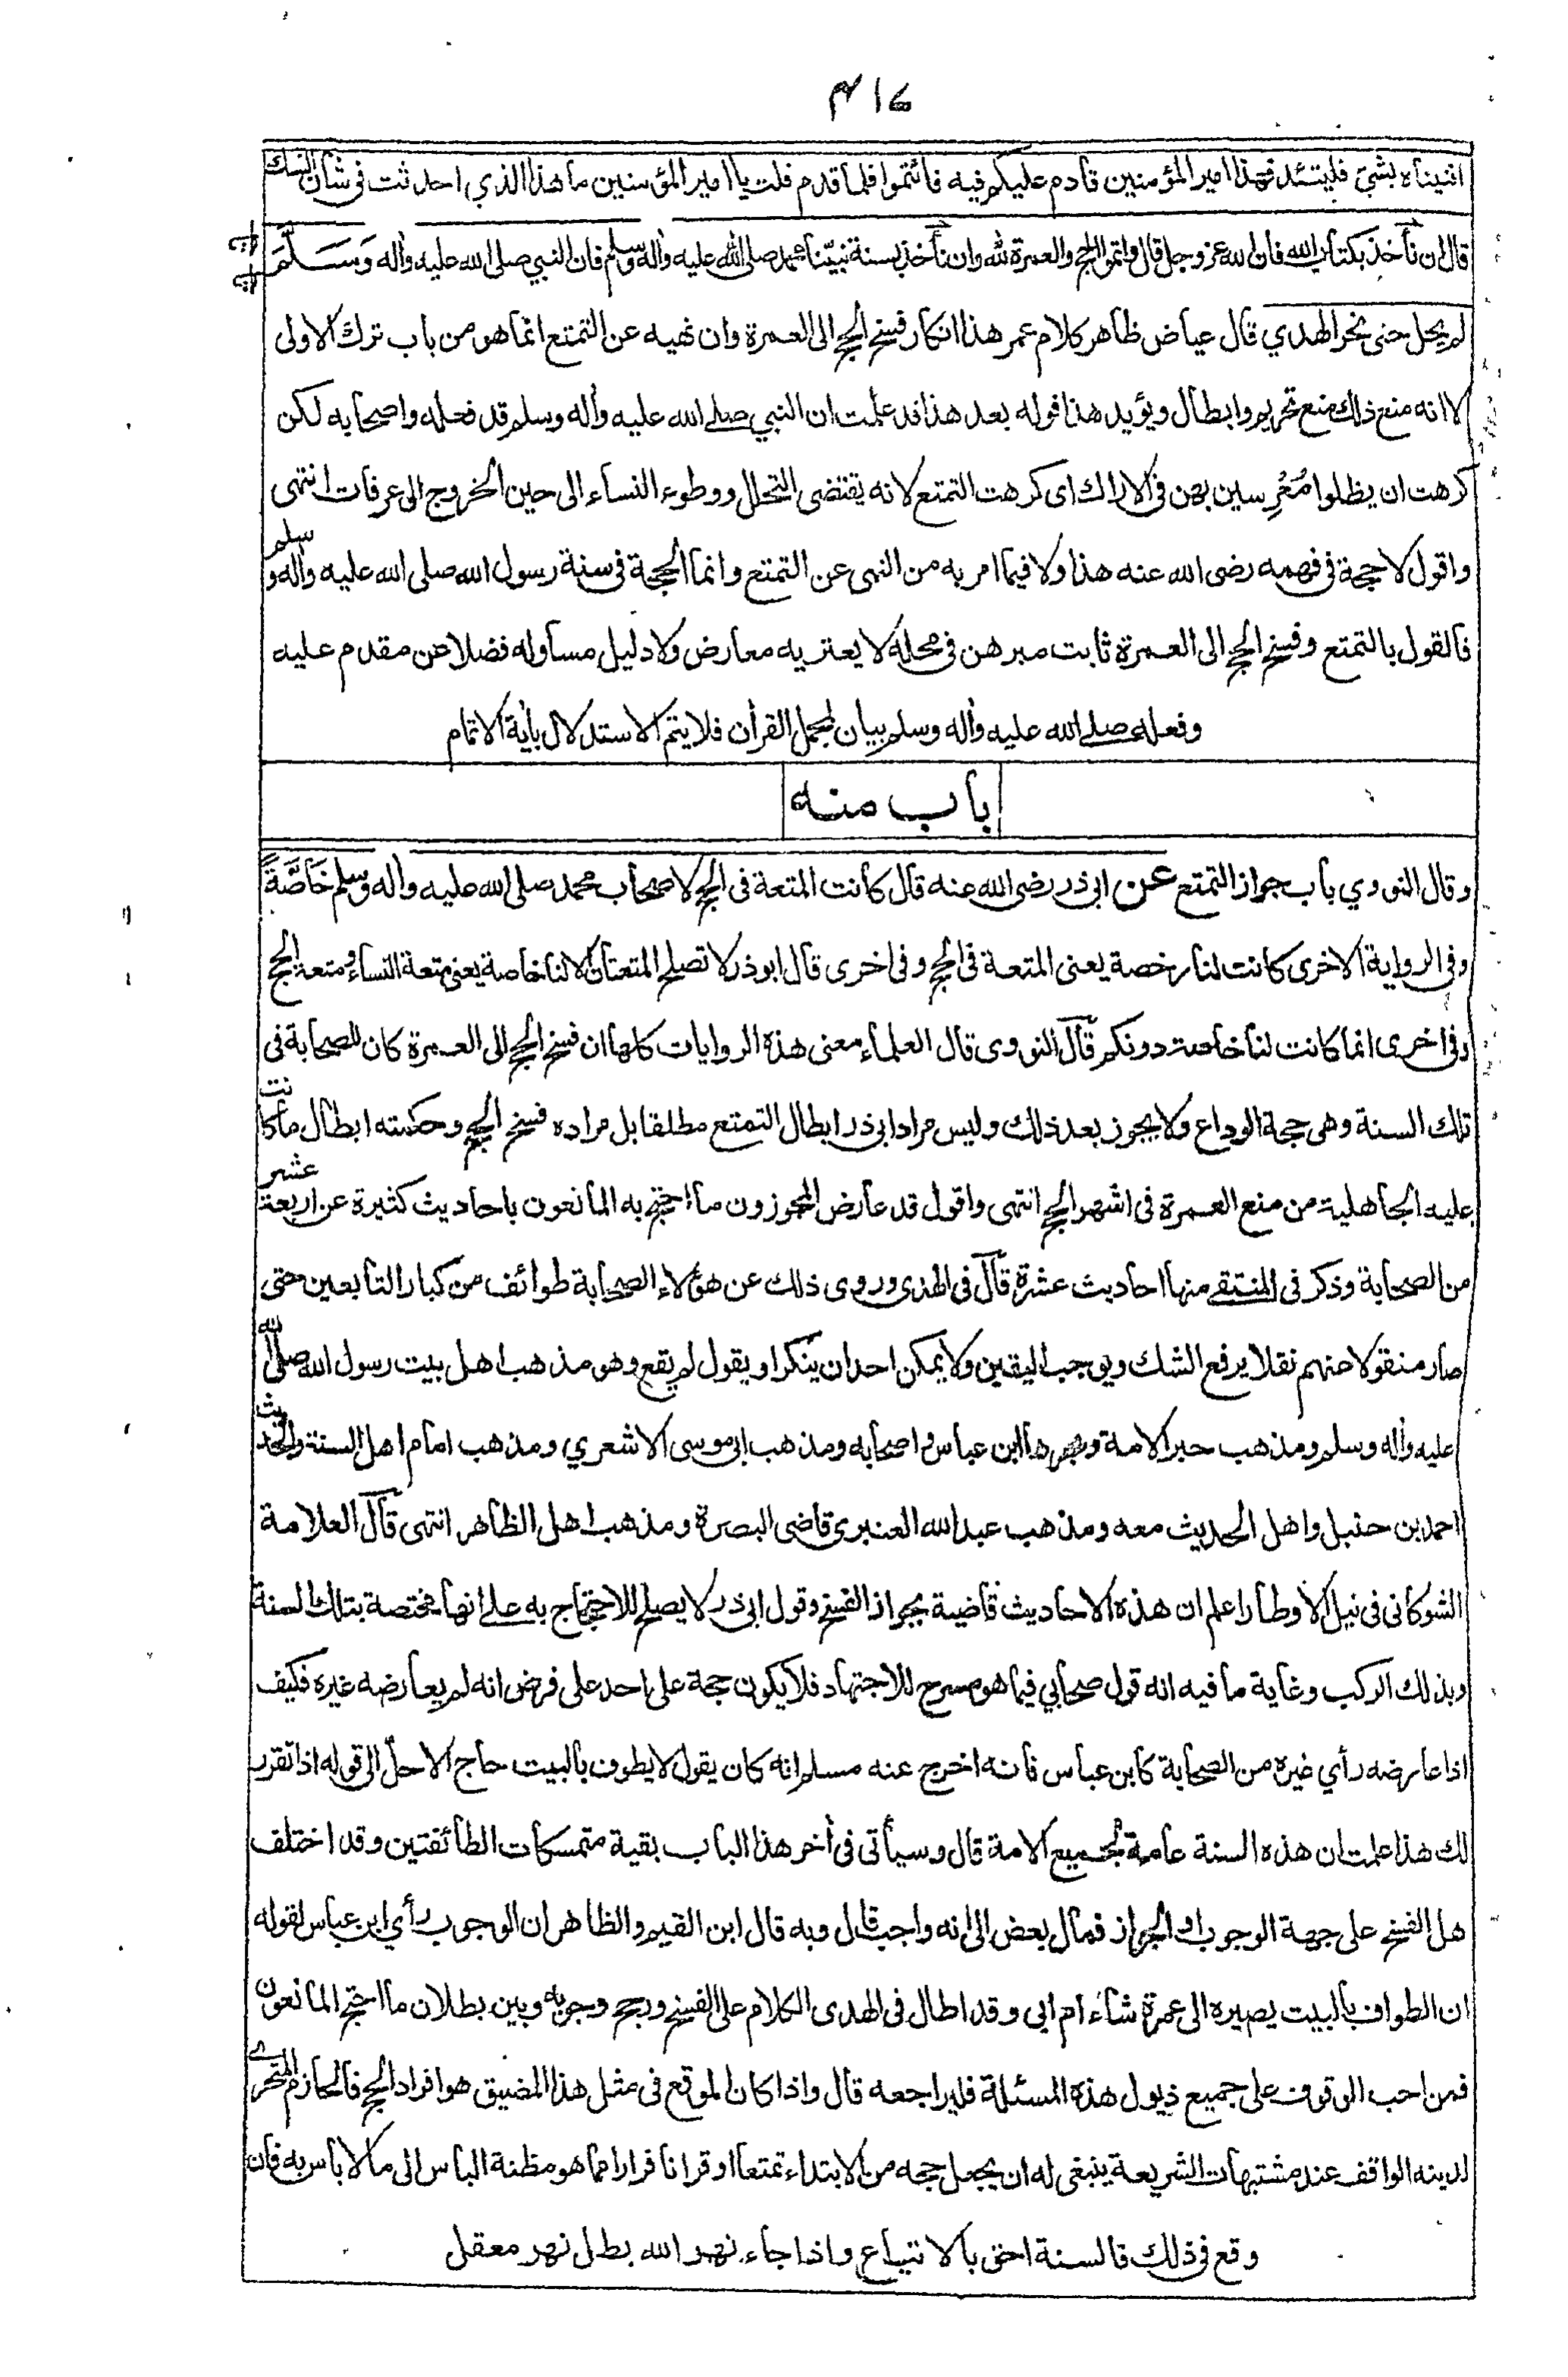 ٤١٦
افتيناه بشيئ فليتئد فهذا امير المؤمنين قادم عليكم فبه فائتموا فلما قدم قلت يا امير المؤمنين ما هذا الذي احدثت فى شان النسك
قال ان نأخذ بكتاب الله فان الله عز وجل قال واتموا الحج والعمرة لله وان نأخذ بسنة نبينا محمد صلى الله عليه واله وسلم فان النبي صلى الله عليه واله وَسَلَّمَ
لم يحل حتى نحر الهدي قال عياض ظاهر كلام عمر هذا انكار فسخ الحج الى العمرة وان نهيه عن التمتع انما هو من باب ترك الاولى
لا انه منع ذلك منع تحريم وابطال ويؤيد هذا قوله بعد هذا قد علمت ان النبي صلے الله عليه واٰله وسلم قد فعله واصحابه لكن
كرهت ان يظلوا مُعْرِسين بهن فى الاراك اى كرهت التمتع لانه يقتضى التحلل ووطوء النساء الى حين الخروج الى عرفات انتهى
واقول لا حجة فى فهمه رضى الله عنه هذا ولا فيما امر به من النهى عن التمتع وانما الحجة فى سنة رسول الله صلى الله عليه واٰله وسلم
فالقول بالتمتع وفسخ الحج الى العمرة ثابت مبرهن فى محله لا يعتريه معارض ولا دليل مساو له فضلا عن مقدم عليه
وفعله صلے الله عليه واٰله وسلم بيان لمجمل القراٰن فلا يتم الاستدلال باٰية الاتمام
باب منه
وقال النووي باب جواز التمتع عن ابى ذر رضى الله عنه قال كانت المتعة فى الحج لاصحاب محمد صلى الله عليه واٰله وسلم خَاصَّةً
وفى الرواية الاخرى كانت لنا رخصة يعنى المتعة فى الحج وفى اخرى قال ابو ذر لا تصلح المتعتان الا لنا خاصة يعنى متعة النساء ومتعة الحج
وفى اخرى انما كانت لنا خاصة دونكم قال النووى قال العلماء معنى هذه الروايات كلها ان فسخ الحج الى العمرة كان للصحابة فى
تلك السنة وهى حجة الوداع ولا يجوز بعد ذلك وليس مراد ابى ذر ابطال التمتع مطلقا بل مراده فسخ الحج وحكمته ابطال ما كانت
عليه الجاهلية من منع العمرة فى اشهر الحج انتهى واقول قد عارض المجوزون ما احتج به المانعون باحاديث كثيرة عن اربعة عشر
من الصحابة وذكر فى المنتقے منها احاديث عشرة قال فى الهدى وروى ذلك عن هؤلاء الصحابة طوائف من كبار التابعين حتى
صار منقولا عنهم نقلا يرفع الشك ويوجب اليقين ولا يمكن احد ان ينكر او يقول لم يقع وهو مذهب اهل بيت رسول الله صلى الله
عليه واٰله وسلم ومذهب حبر الامة وبحرها ابن عباس واصحابه ومذهب ابى موسى الاشعري ومذهب امام اهل السنة والحديث
احمد بن حنبل واهل الحديث معه ومذهب عبد الله العنبرى قاضى البصرة ومذهب اهل الظاهر انتهى قال العلامة
الشوكانى فى نيل الاوطار اعلم ان هذه الاحاديث قاضية بجواز الفسخ وقول ابى ذر لا يصلح للاحتجاج به علے انها مختصة بتلك السنة
وبذلك الركب وغاية ما فيه انه قول صحابي فيما هو مسرح للاجتهاد فلا يكون حجة على احد على فرض انه لم يعارضه غيره فكيف
اذا عارضه رأي غيره من الصحابة كابن عباس فانه اخرج عنه مسلم انه كان يقول لا يطوف بالبيت حاج الا حلّ الى قوله اذا تقرر
لك هذا علمت ان هذه السنة عامة لجميع الامة قال وسيأتى فى اٰخر هذا الباب بقية متمسكات الطائفتين وقد اختلف
هل الفسخ على جهة الوجوب او الجواز فمال بعض الى انه واجب قال وبه قال ابن القيم والظاهر ان الوجوب رأي ابن عباس لقوله
ان الطواف بالبيت يصيره الى عمرة شاء ام ابى وقد اطال فى الهدى الكلام على الفسخ ورجح وجوبه وبين بطلان ما احتج به المانعون
فمن احب الوقوف على جميع ذيول هذه المسئلة فليراجعه قال واذا كان الموقع فى مثل هذا المضيق هو افراد الحج فالحازم المتحرے
لدينه الواقف عند مشتبهات الشريعة ينبغى له ان يجعل حجه من الابتداء تمتعا او قرانا فرارا مما هو مظنة الباس الى ما لا باس به فان
وقع فى ذلك فالسنة احق بالاتباع واذا جاء نهر الله بطل نهر معقل